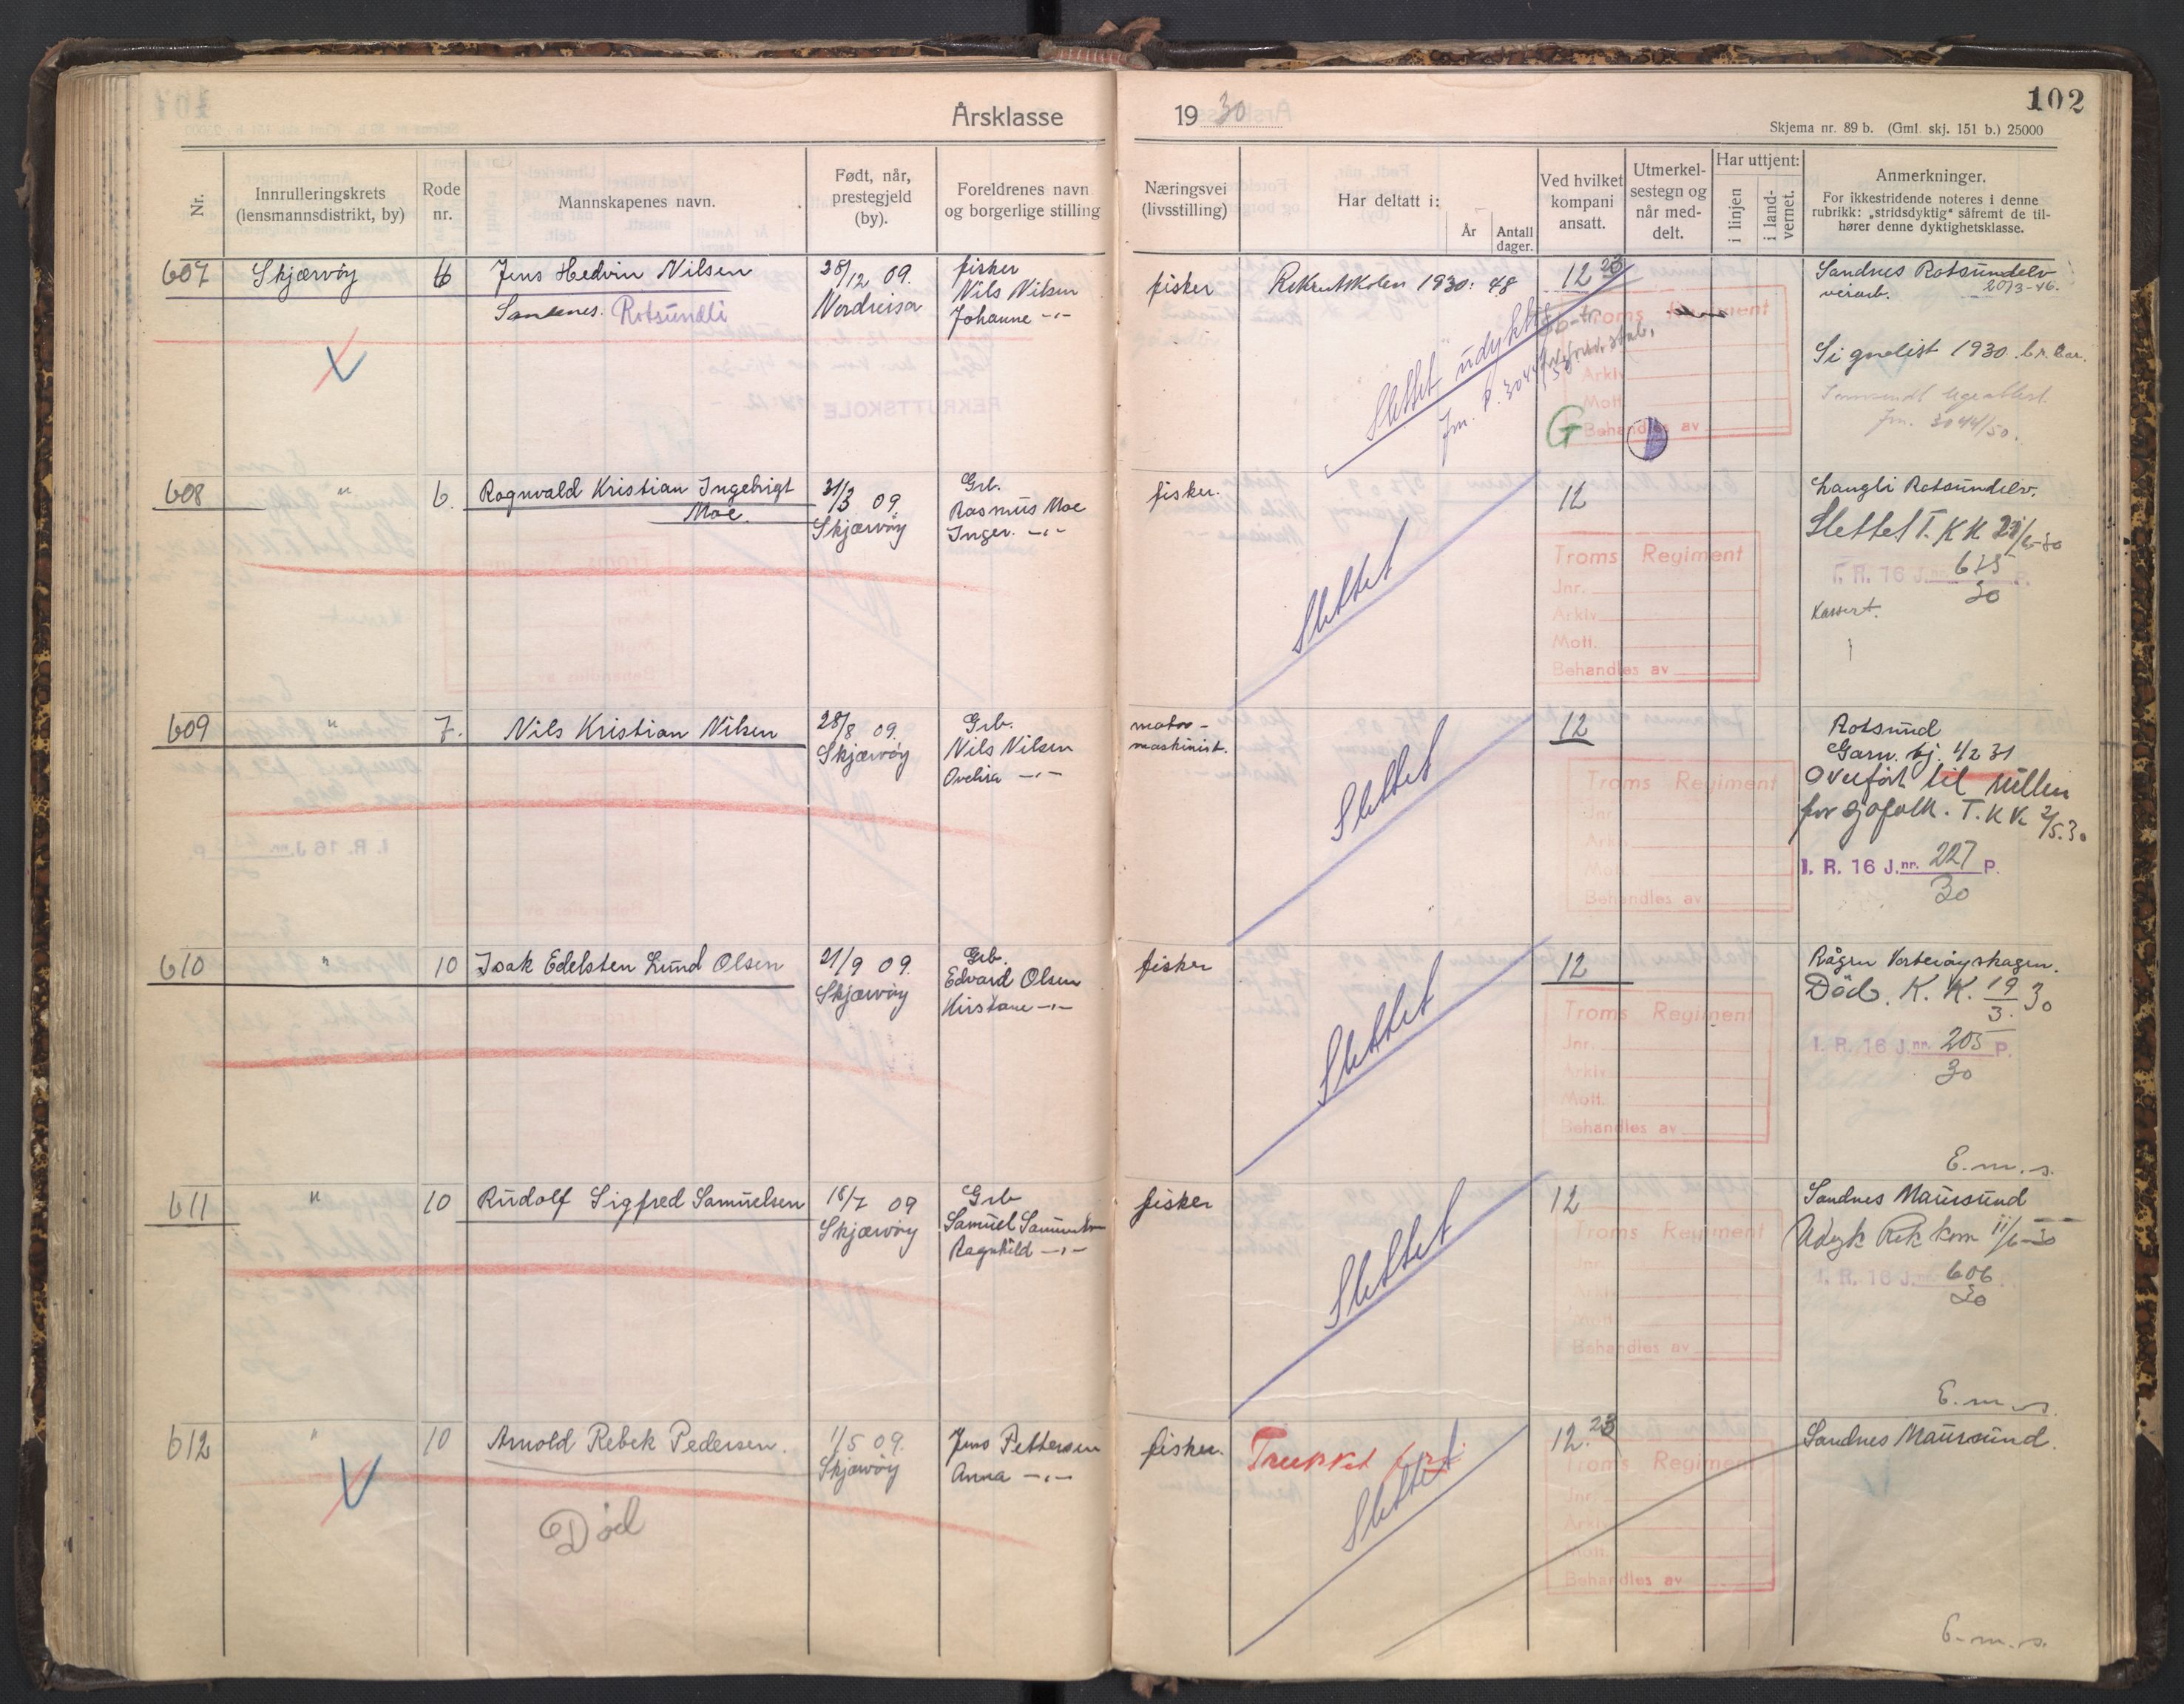 Årsklasse 19 30
102
Skjema nr. 89 b. (Gml. skj. 151 b.) 25000
Nr.
Innrulleringskrets (lensmannsdistrikt, by)
Rode nr.
Mannskapenes navn.
Født, når, prestegjeld (by).
Foreldrenes navn og borgerlige stilling
Næringsvei (livsstilling)
Har deltatt i:
År
Antall dager.
Ved hvilket kompani ansatt.
Utmerkel-sestegn og når med-delt.
Har uttjent:
i linjen
i land-vernet.
Anmerkninger.
For ikkestridende noteres i denne rubrikk: „stridsdyktig" såfremt de til-hører denne dyktighetsklasse.
607 Skjærvøy 6 Jens Hedvin Nilsen 28/12 09. fisker
Rotsundli Nordreisa Nils Nilsen
Johanne -"-
fisker Rekrutskolen 1930: 48 12 23 Sandnes Rotsundelv
20/3-46.
Troms Regiment
Slettet udyktig
Jnr. P. 3044/50
Signalist 1930
Arkiv
Mott.
G Behandles av
Jnr. 3044/50.
608 " 6. Ragnvald Kristian Ingebrigt 31/3 09. Grb.
Moe. Skjærvøy Rasmus Moe
Inger. -"-
fisker. 12 Langli Rotsundelv.
Slettet T. K K 21/6-30
Slettet
Troms Regiment
I. R. 16 J.nr. 615 P.
30
Jnr.
Arkiv
Kassert.
Mott.
Behandles av
609 " 7. Nils Kristian Nilsen 28/8 09. Grb.
Skjærvøy Nils Nilsen
Ovelisa -"-
motor-
maskinist.
12 Rotsund
Garn. bj. 1/2 31
Overført til rullen
for sjøfolk. T. K K. 2/5.30
Slettet
Troms Regiment
Jnr.
Arkiv
Mott.
Behandles av
I. R. 16 J.nr. 227 P.
30
610 " 10 Isak Edelsten Lund Olsen 21/9 09. Grb.
Skjærvøy Edvard Olsen
Kristane -"-
fisker 12 Vorterøyskagen.
Død. K. K. 19/3. 30
Slettet
Troms Regiment
I. R. 16 J.nr. 205 P.
30
Jnr.
Arkiv
Mott.
Behandles av
E. m. s.
611 " 10 Rudolf Sigfred Samuelsen 18/7 09 Grb
Skjærvøy Samuel Samuelsen
Ragnhild -"-
fisker 12 Sandnes Maursund
Udyk Rek kom 11/6-30
Slettet
Troms Regiment
I. R. 16 J.nr. 606
30
Jnr.
Arkiv
Mott.
Behandles av
E. m. s.
612 " 10 Arnold Rebek Pedersen. 1/5 09. Jens Pettersen
Skjærvøy Anna -"-
Død
fisker. Trukket fri 12. 23 Sandnes Maursund.
Slettet
Troms Regiment
Jnr.
Arkiv
Mott.
Behandles av
E. m. s.